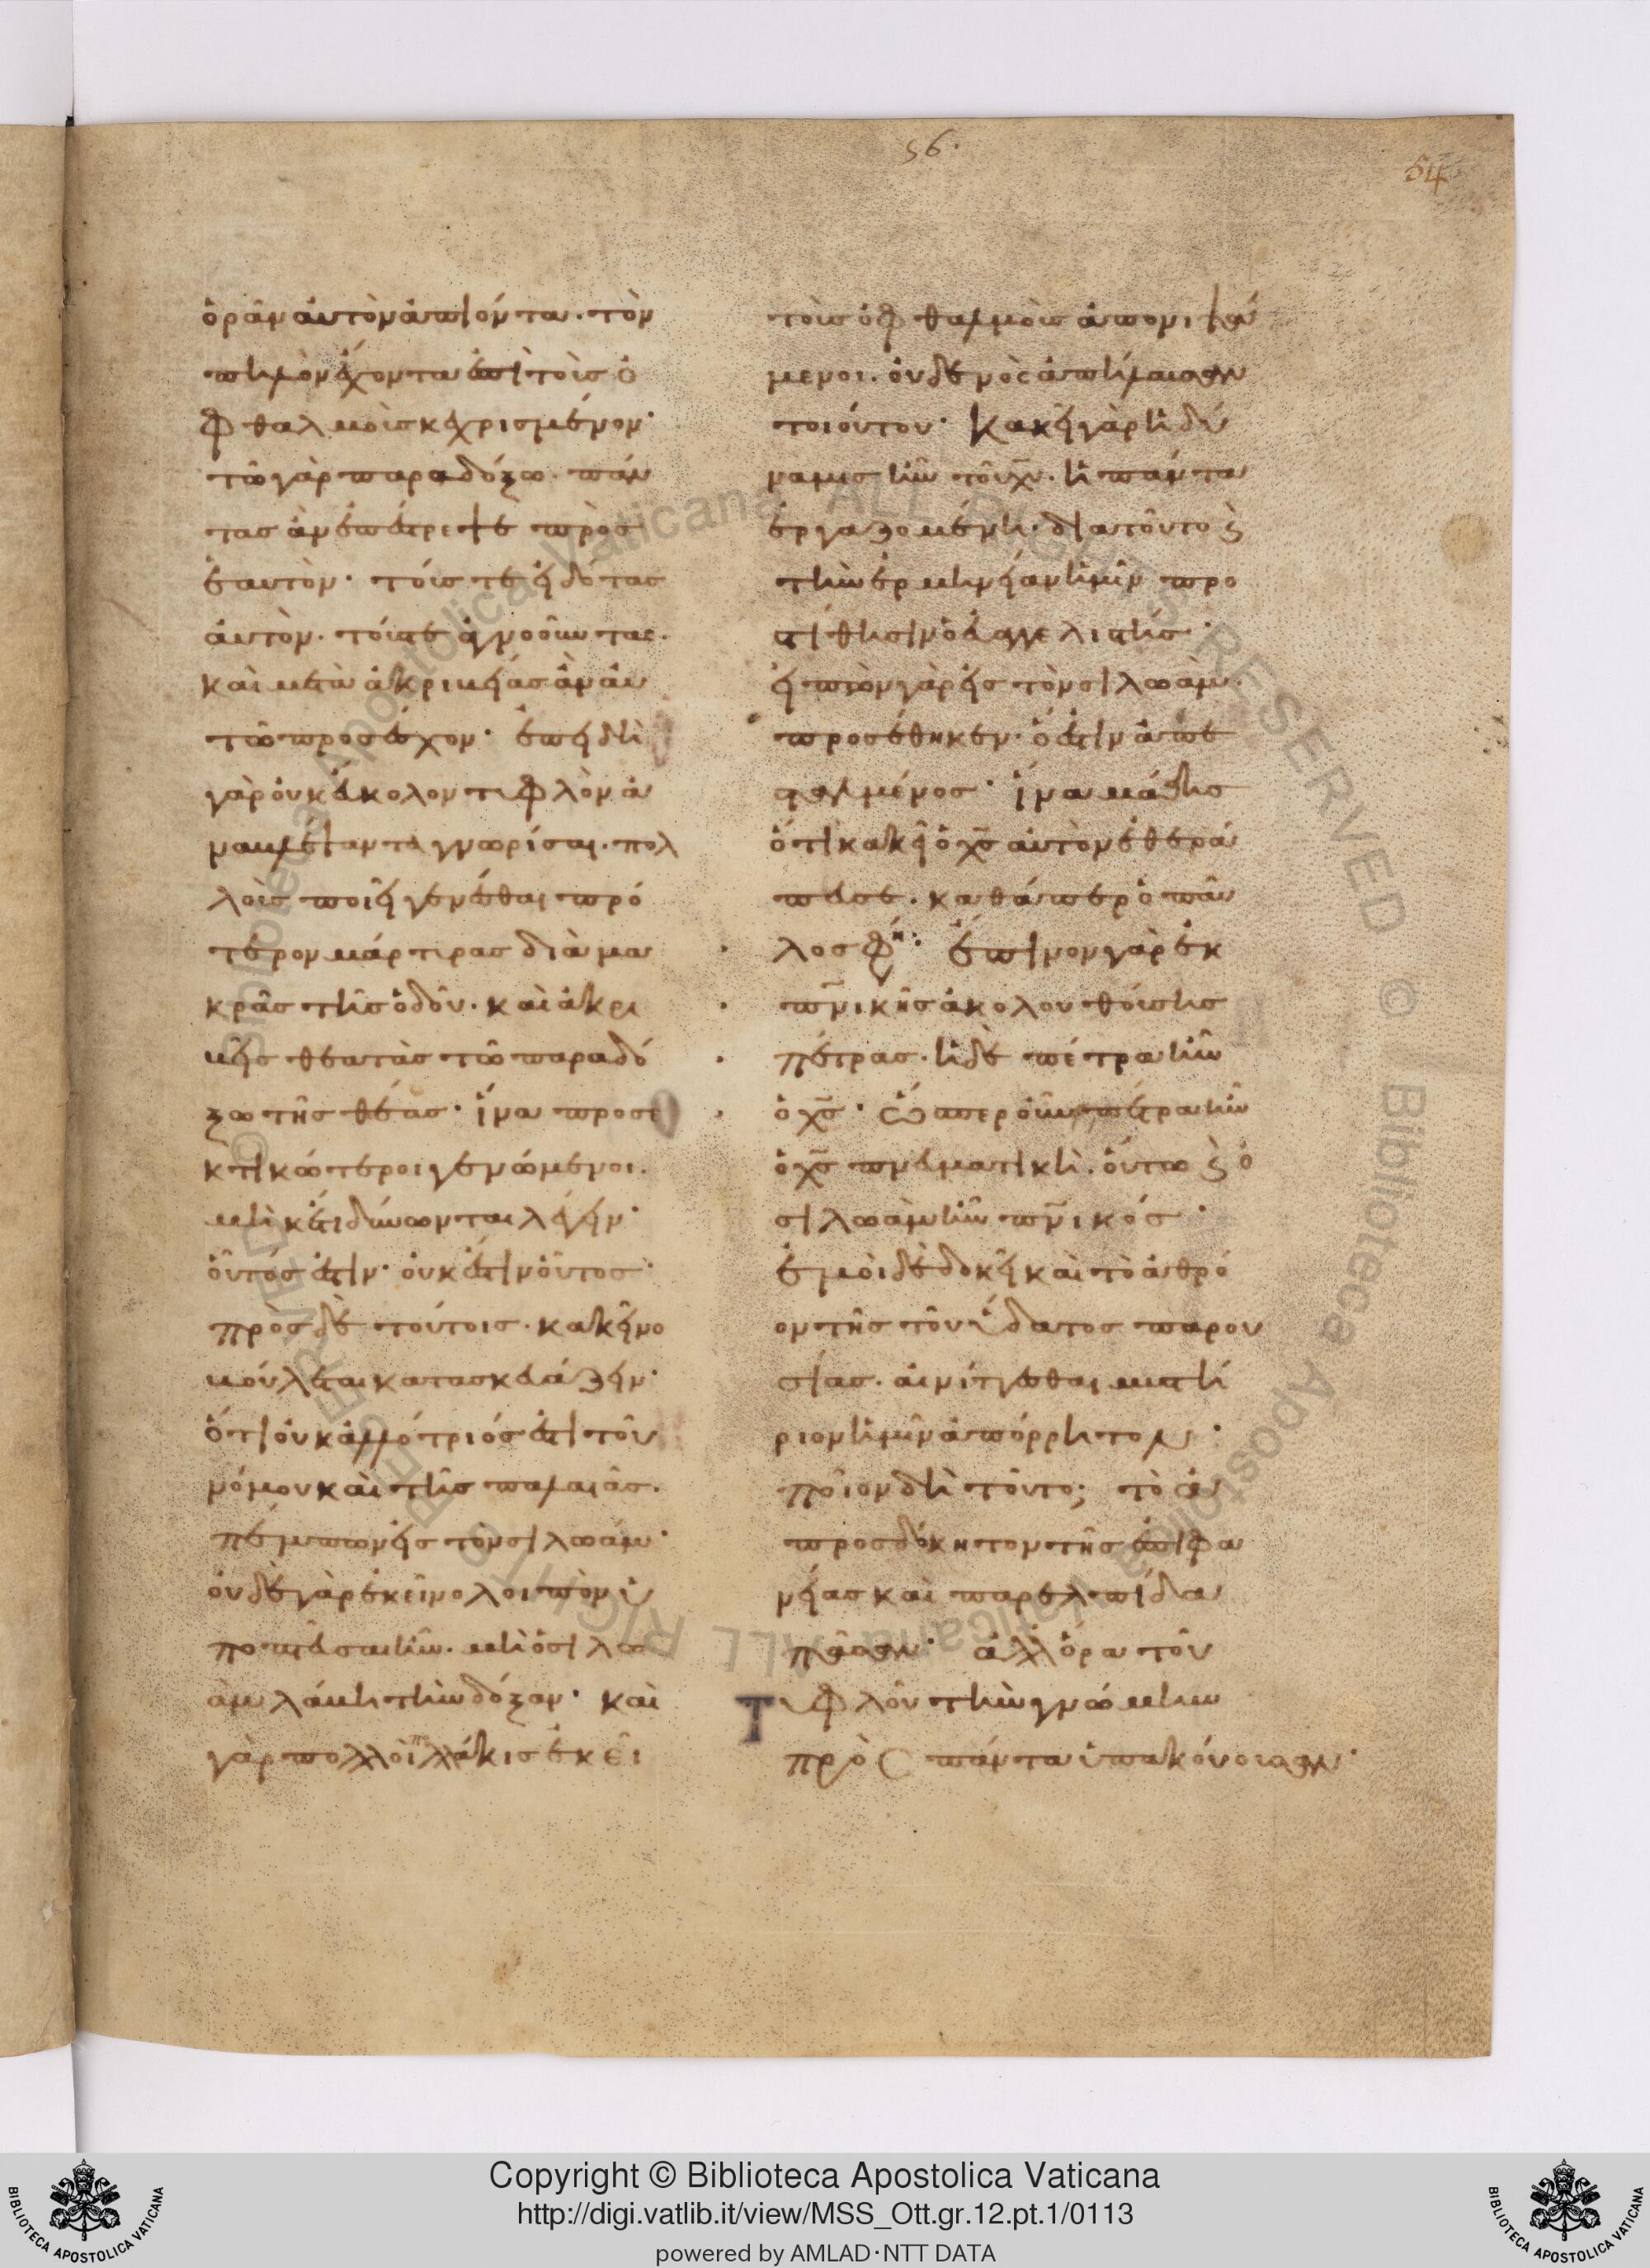 56.
54
ὁρᾶν ἀυτὸν ἀπιόντα. τὸν
πηλὸν ἔχοντα ἐπὶ τοὶς ὀ
φθαλμοὶς κεχρισμένον·
τῶ γὰρ παραδόξω. πάν
τας ἀνεπέτρεψε πρὸσ
ἑαυτὸν· τόυσ τε ειδότασ
ἀυτὸν. τόυστε ἀγνοοῦντας.
καὶ μετὰ ἀκριβείασ ἂν ἀυ
τῶ προσέχον· ἐπειδὴ
γὰρ ὀυκ ἔυκολον τυφλὸν ἀ
ναβλέψαντα γνωρίσαι. πολ
λοὺσ ποιεῖ γενέσθαι πρό
τερον μάρτυρασ διὰ μα
κρᾶσ τῆσ ὁδοῦ. καὶ ἀκρι
βεῖσ θεατὰσ τῶ παραδό
ξω τῆσ θέασ· ἵνα προσε
κτικώτεροι γενώμενοι.
μὴ κέτι δύνωνται λέγειν·
ὅυτόσ ἐστιν· ὀυκ ἔστιν ὅυτοσ·
πρὸσ δὲ τούτοισ. κακεῖνο
βούλεται κατασκευάζειν·
ὅτι ὀυκ ἀλλότριόσ ἐστι τοῦ
νόμου καὶ τῆσ παλαιᾶσ.
πέμπων εἰσ τὸν σιλωάμ·
ὀυδὲ γὰρ ἐκεῖνο λοιπὸν ὑ
ποπτεῦσαι ἦν. μὴ ὁ σιλω
ὰμ λάβη τὴν δόξαν· καὶ
γὰρ πολλοὶ πολλάκισ ἐκεῖ
τοὺσ ὀφθαλμοὺσ ἀπονιψά
μενοι. ὀυδενὸς ἀπήλαυσαν
τοιούτου· κακεῖ γὰρ ἡ δύ
ναμισ ἦν τοῦ χῦ. ἡ πάντα
ἐργαζομένη. διατοῦτο ϗ
τὴν ἑρμηνείαν ἡμῖν προ
στίθησιν ὁ ἐυαγγελιστήσ·
ειπὼν γὰρ εἰσ τὸν σιλωάμ.
προσέθηκεν. ὅ ἐστιν ἀπε
σταλμένοσ· ἵνα μάθησ
ὅτι κακεῖ ὁ χσ ἀυτὸν ἐθερά
πευσε. καθάπερ ὁ παῦ
λοσ φη: ἔπινον γὰρ ἐκ
πνικῆσ ἀκολουθούσησ
πέτρασ. ἡ δὲ πέτρα ἦν
ὁ χσ· ὥσπερ ὀυν πέτρα ἦν
ὁ χσ πνευματικὴ. ὅυτω ϗ ὁ
σιλωὰμ ἦν πνικόσ·
ἐμοὶ δὲ δοκεῖ καὶ τὸ ἀθρό
ον τῆσ τοῦ ὕδατοσ παρου
σίασ. ἀινίττεσθαι μυστή
ριον ἡμῖν ἀπόρρητον·
ποῖον δὴ τοῦτο; τὸ ἀ
προσδόκητον τῆσ ἐπιφα
νείασ καὶ παρ ἐλπίδα
πᾶσαν· ἀλλ ὅρα τοῦ
τυφλοῦ τὴν γνώμην
πρὸς πάντα ὑπακόυουσαν·
Copyright © Biblioteca Apostolica Vaticana
http://digi.vatlib.it/view/MSS_Ott.gr.12.pt.1/0113
powered by AMLAD·NTT DATA
BIBLIOTECA APOSTOLICA VATICANA
BIBLIOTECA APOSTOLICA VATICANA